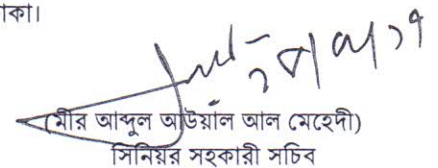 াকা।
(মীর আব্দুল আউয়াল আল মেহেদী)
সিনিয়র সহকারী সচিব